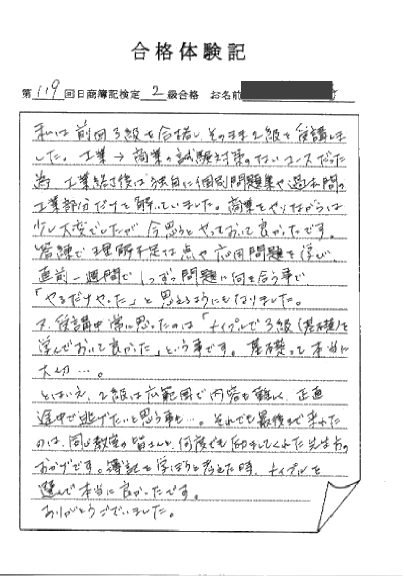 合格体験記
第119回日商簿記検定2級合格 お名前
私は前回3級を合格し、そのまま2級を受講しま
した。工業→商業の試験対策のないコースだった
為、工業終了後は独自に個別問題集や過去問の
工業部分だけを解いていました。商業をやりながらは
少し大変でしたが、今思うとやっておいて良かったです。
答練で理解不足な点や応用問題を学び、
直前一週間で1つずつ問題に向き合う事で
「やるだけやった」と思えるようにもなりました。
又、受講中常に思ったのは「ナイフルで3級(基礎)を
学んでおいて良かった」という事です。基礎って本当に
大切…。
とはいえ、2級は広範囲で内容も難しく、正直
途中で逃げたいと思う事も…。それでも最後まで来れた
のは、同じ教室の皆さんと、何度でも励ましてくれた先生方の
おかげです。簿記を学ぼうと考えた時、ナイフルを
選んで本当に良かったです。
ありがとうございました。